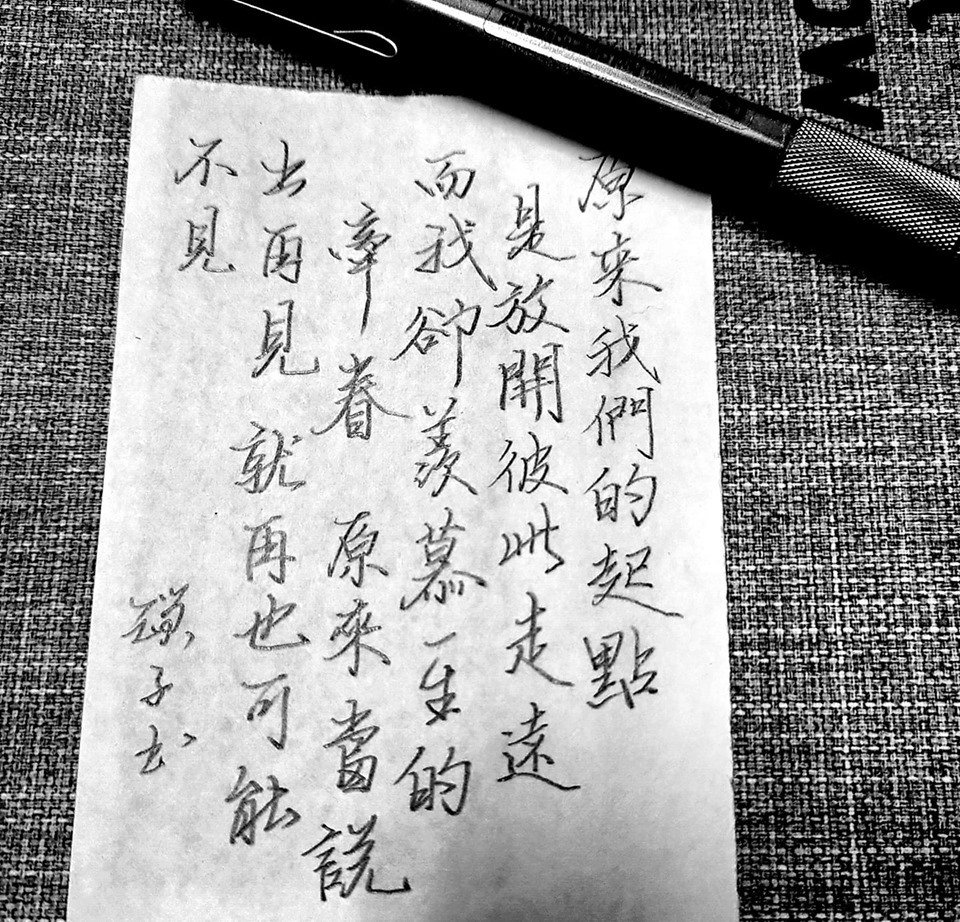 原來我們的起點
是放開彼此走遠
而我卻羨慕一生的
牽眷 原來當說
出再見 就再也可能
不見
子书